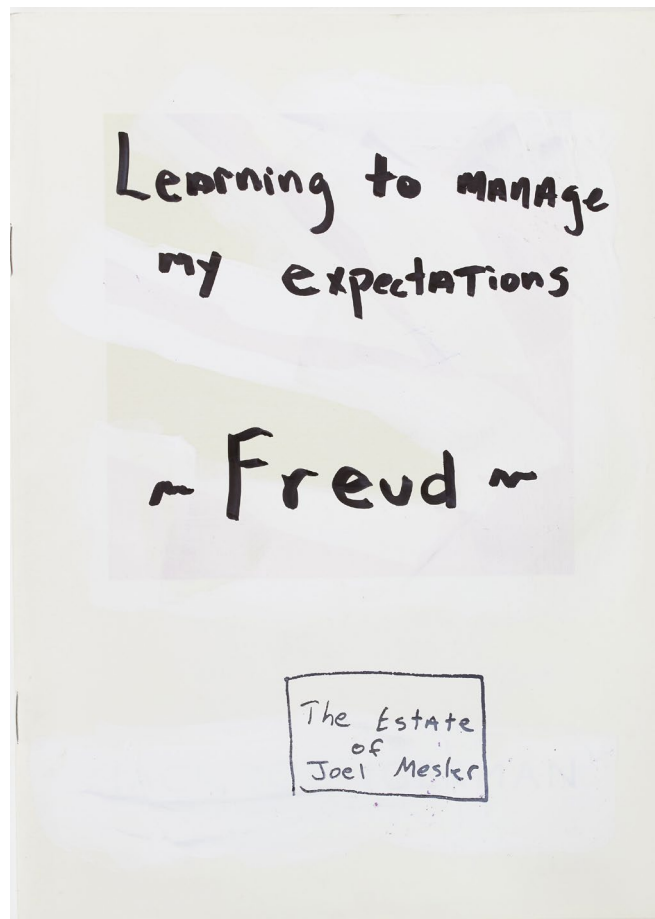 Learning to manage
my expectations
~ Freud ~
The Estate
of
Joel Mesler